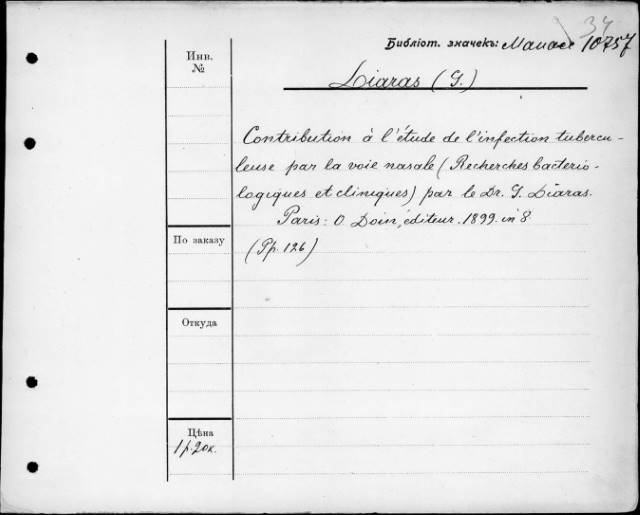 37
Библіот. значекъ: 10757
Инв.
№
Liaras (G.)
Contribution à l'étude de l'infection tubercu-
leuse par la voie nasale (Recherches bacterio-
logiques et cliniques) par le Dr. G. Liaras.
Paris: O. Doin, éditeur. 1899. in 8
(Pp. 126)
По заказу
Откуда
Цѣна
1 р. 20 к.